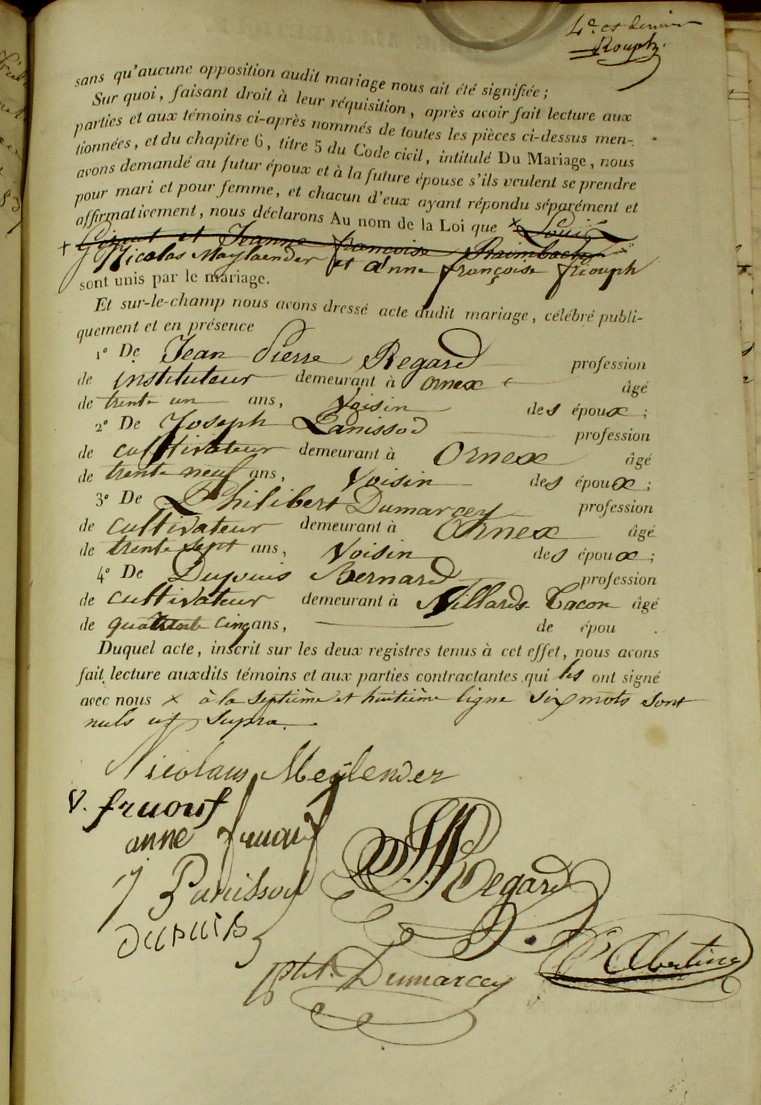 4.e et dernier
Rouph.
sans qu'aucune opposition audit mariage nous ait été signifiée ;
Sur quoi, faisant droit à leur réquisition, après avoir fait lecture aux
parties et aux témoins ci-après nommés de toutes les pièces ci-dessus men-
tionnées, et du chapitre 6, titre 5 du Code civil, intitulé Du Mariage, nous
avons demandé au futur époux et à la future épouse s'ils veulent se prendre
pour mari et pour femme, et chacun d'eux ayant répondu séparément et
affirmativement, nous déclarons Au nom de la Loi que × Louis
+ et Jeanne françoise
Nicolas Maylaender et anne françoise friouph
sont unis par le mariage.
Et sur-le-champ nous avons dressé acte dudit mariage, célébré publi-
quement et en présence
1° De Jean Pierre Regard profession
de instituteur demeurant à Ornex âgé
de trente un ans, Voisin des époux ;
2° De Joseph Panissod profession
de cultivateur demeurant à Ornex âgé
de trente neuf ans, Voisin des époux ;
3° De Philibert Dumarcey profession
de cultivateur demeurant à Ornex âgé
de trente sept ans, Voisin des époux ;
4° De Dupuis Bernard profession
de cultivateur demeurant à Villards Tacon âgé
de cinq ans, de épou
Duquel acte, inscrit sur les deux registres tenus à cet effet, nous avons
fait lecture auxdits témoins et aux parties contractantes qui les ont signé
avec nous × à la septième et huitième ligne six mots sont
nuls ut supra.
Nicolaus Meylender
v. fruouf
anne fruouf
J Panissod
Regard
DUPUIS
pht. Dumarcey